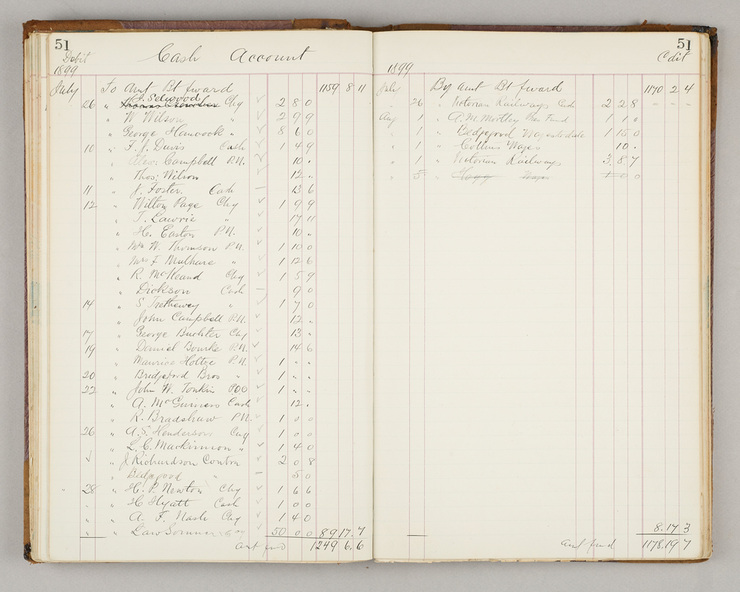 51
Debit
Cash Account
1899
July To Amt Bt forward 1159 8 11
26 " J. Selwood Chq 2 8 0
" W Wilson " 2 9 9
" George Hancock " 8 6 0
10 " F. J. Davis Cash 1 4 9
" Campbell P.N. 10 "
" Thos Wilson 12 "
11 " J. Foster Cash 13 6
12 " Wilton Page Chq 1 9 9
" T. Lawrie " 17 11
" H. Easton P.N. 10 "
" Mr W. Thomson P.N. 1 10 0
" Mrs F. Mulhare " 1 12 6
" R. McHeand Chq 1 5 9
" Dickson Cash 9 0
14 " S. Trethewey " 1 7 0
" John Campbell P.N. 12 "
17 " George Buchter Chq 13 "
19 " Daniel Bourke P.N. 14 6
" Maurice Holtze P.N. 1 " "
20 " Bridgford Bros " 1 " "
22 " John W. Tonkin POO 1 " "
" A. McGuiness Cash 12 "
" R. Bradshaw P.N. 1 0 0
26 " A. S. Henderson Chq 1 0 0
" L. C. Mackinnon " 1 4 0
" J Richardson Contra 2 0 8
" Bedggood " 5 0
28 " H. P. Newton Chq 1 6 6
" H Hyatt Cash 1 0 0
" A. F. Nash Chq 1 4 0
" Law Somner 50 0 0 89 17 7
Amt fwd 1249 6 6
51
Credit
1899
July By Amt Bt forward 1170 2 4
26 " Victorian Railways Cash 2 2 8
Aug 1 " A. M. Mottley Fund 1 1 0
" 1 " Bedggood Wages to date 1 15 0
" 1 " Collins Wages 10 "
" 1 " Victorian Railways 3 8 7
" 5 " Wages 1 0 0
8 17 3
Amt fwd 1178 19 7